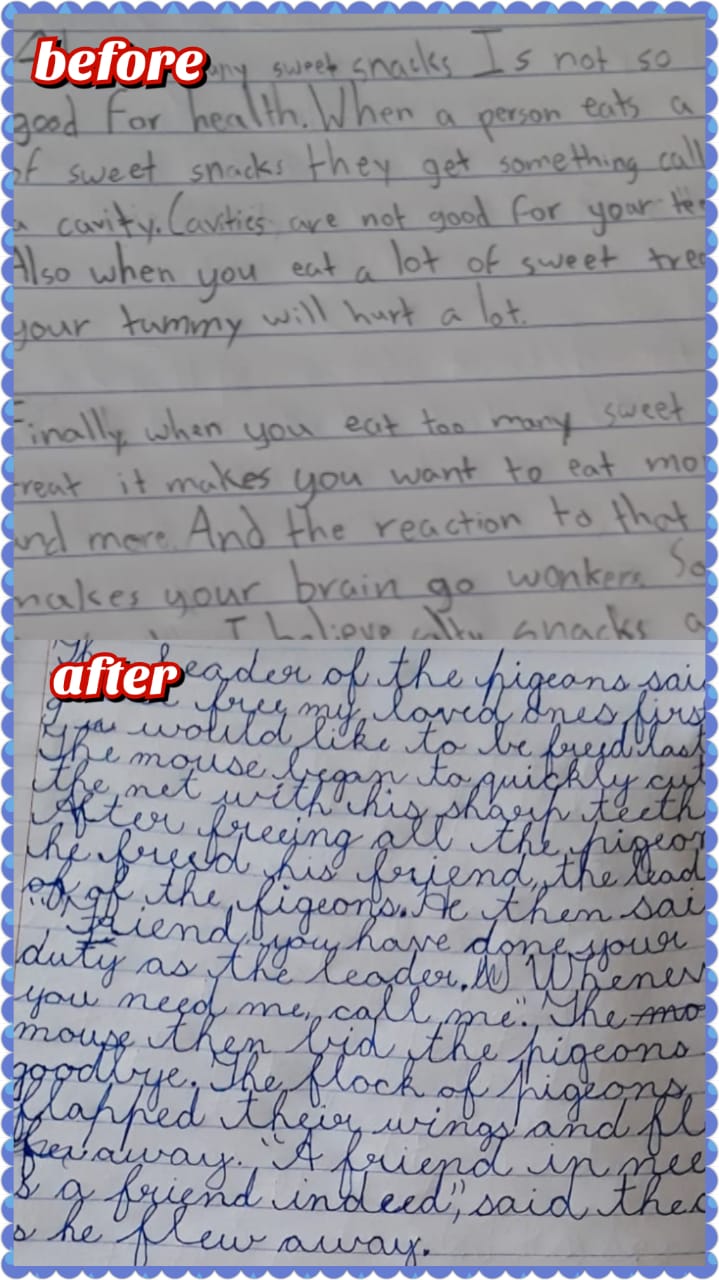 before
any sweet snacks Is not so
good for health. When a person eats a
of sweet snacks they get something call
a cavity. Cavities are not good for your te
Also when you eat a lot of sweet trea
your tummy will hurt a lot.
Finally, when you eat too many sweet
treat it makes you want to eat mor
and more. And the reaction to that
makes your brain go wonkers. So
I believe snacks a
after
leader of the pigeons sai
free my loved ones firs
would like to be freed last
The mouse began to quickly cut
the net with his sharp teeth
After freeing all the pigeon
he freed his friend, the lead
of the pigeons. He then sai
"Friend, you have done your
duty as the leader. Whenev
you need me, call me". The mo
mouse then bid the pigeons
goodbye. The flock of pigeons
flapped their wings and fl
away. "A friend in nee
is a friend indeed", said the
s he flew away.